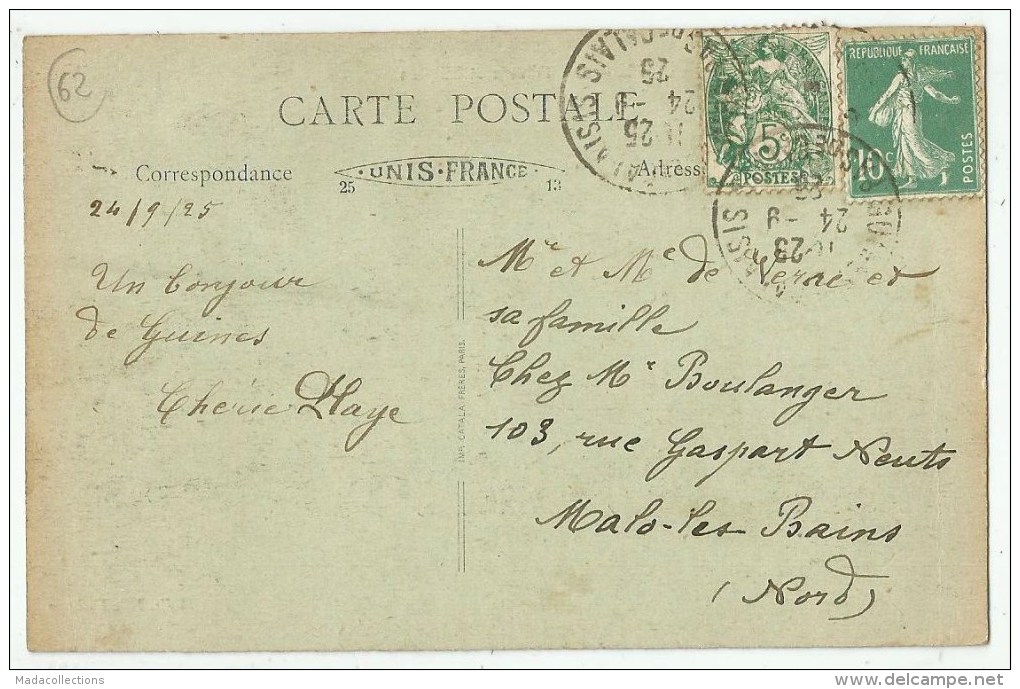 62
CARTE POSTALE
Correspondance
25 · UNIS · FRANCE · 13
Adresse
24/9/25
Un bonjour
de Guines
Chérie
Mr et Me de Verne et
sa famille
Chez Mr Boulanger
103, rue Gaspart Neuts
Malo-les Bains
(Nord)
IMP. CATALA FRÈRES, PARIS.
5
POSTES
REPUBLIQUE FRANÇAISE
10c
POSTES
24 -9
25
24 -9
Madacollections